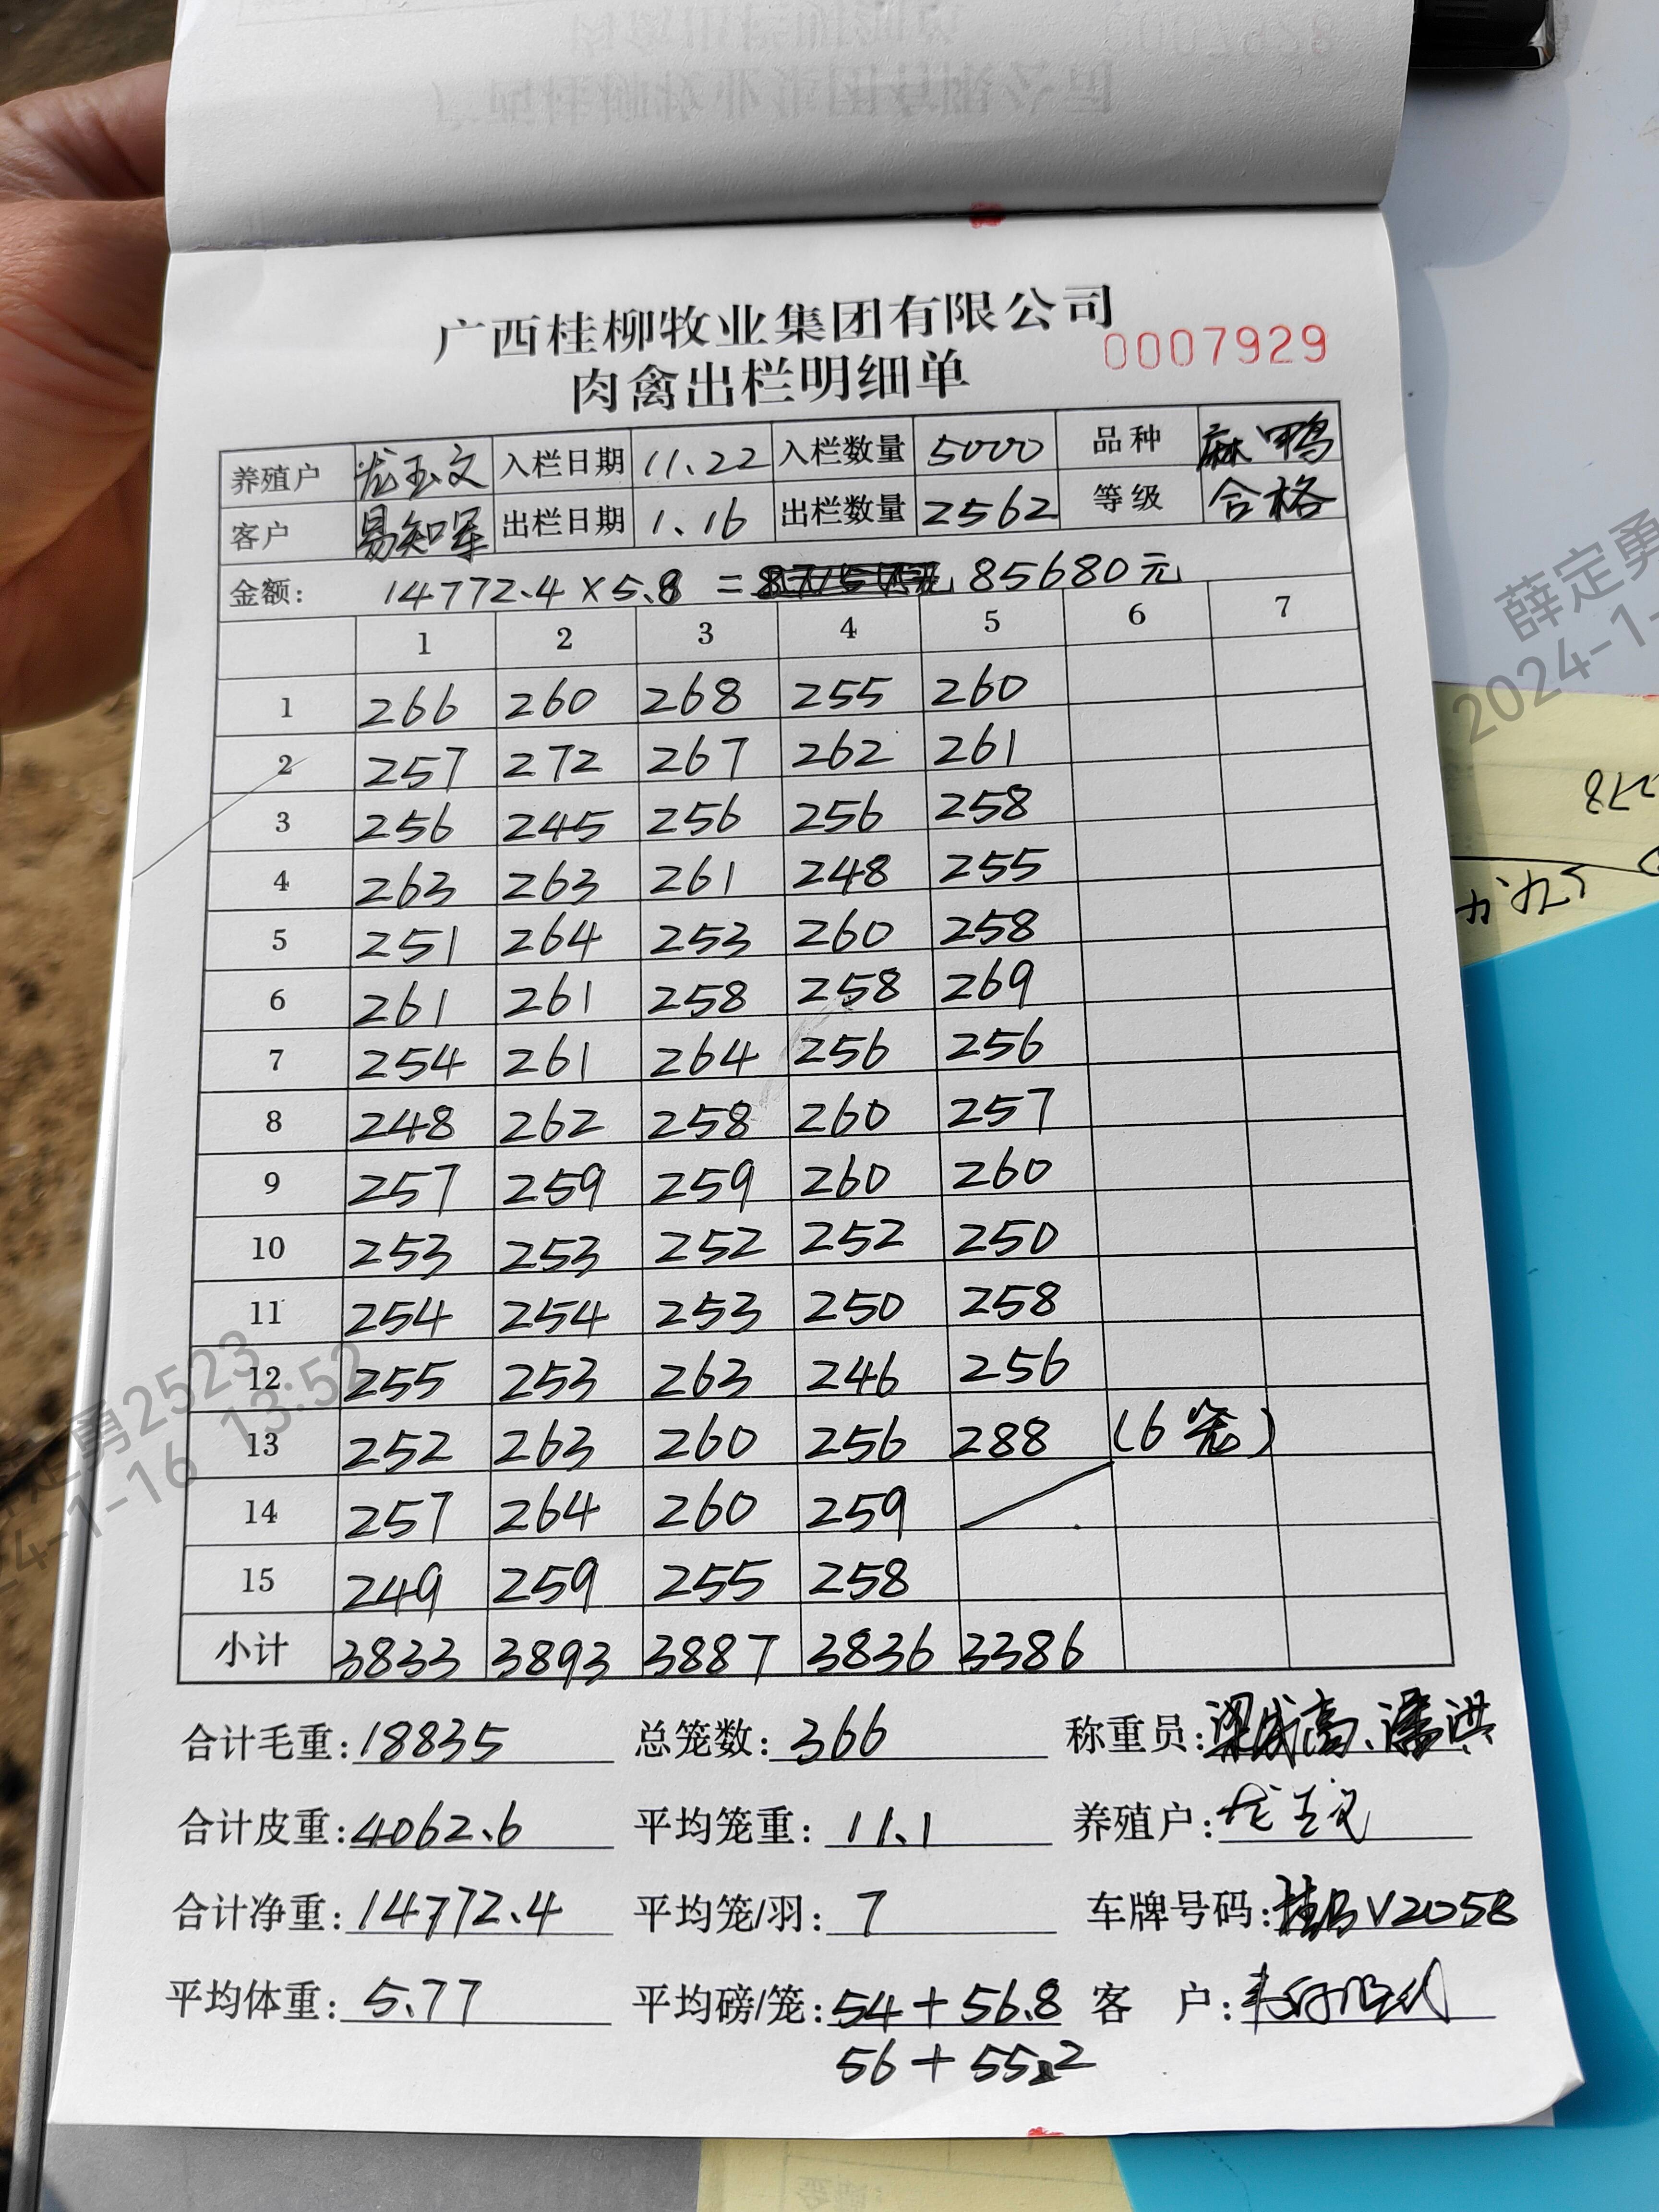 广西桂柳牧业集团有限公司
肉禽出栏明细单 0007929
养殖户 龙玉文 入栏日期 11.22 入栏数量 5000 品种 麻甲鸭
客户 易知军 出栏日期 1.16 出栏数量 2562 等级 合格
金额: 14772.4×5.8 = 85680元
1 2 3 4 5 6 7
1 266 260 268 255 260
2 257 272 267 262 261
3 256 245 256 256 258
4 263 263 261 248 255
5 251 264 253 260 258
6 261 261 258 258 269
7 254 261 264 256 256
8 248 262 258 260 257
9 257 259 259 260 260
10 253 253 252 252 250
11 254 254 253 250 258
12 255 253 263 246 256
13 252 263 260 256 288 (6笼)
14 257 264 260 259
15 249 259 255 258
小计 3833 3893 3887 3836 3386
合计毛重: 18835 总笼数: 366 称重员: 梁成高、潘洪
合计皮重: 4062.6 平均笼重: 11.1 养殖户: 龙玉文
合计净重: 14772.4 平均笼/羽: 7 车牌号码: V2058
平均体重: 5.77 平均磅/笼: 54+56.8 客 户:
56+55.2
薛定勇
2024-1-
勇2523
4-1-16 13:52